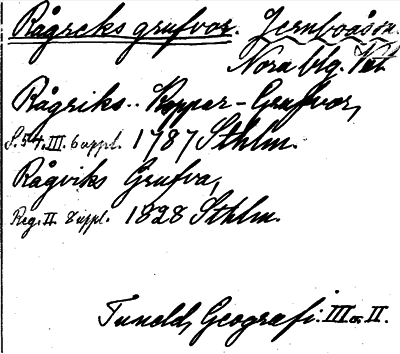 Rågreks grufvor. Jernboåsn.
Nora blg. Vst.
Rågriks.. Koppar-Grufvor,
S. 54. III. 6 uppl. 1787 Sthlm.
Rågviks Grufva,
Reg. II. 8 uppl. 1828 Sthlm.
Tuneld, Geografi. III o. II.